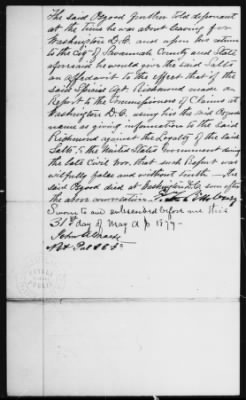 The said Osgood further told deponent
at the time he was about leaving for
Washington D.C. and upon his return
to the City of Savannah County and State
aforesaid he would give the said Salts
an affidavit to the effect that if the
said Special Agt Richmond made an
Report to the Commissioners of Claims at
Washington D.C. using his the said Osgood
name as giving information to the said
Richmond against the Loyalty of the said
to the United States Government during
the late Civil War, that such Report was
wilfully false and without truth — The
said Osgood died at Washington D.C. soon after
the above conversation
Sworn to and subscribed before me this
31st day of May A D 1877
John